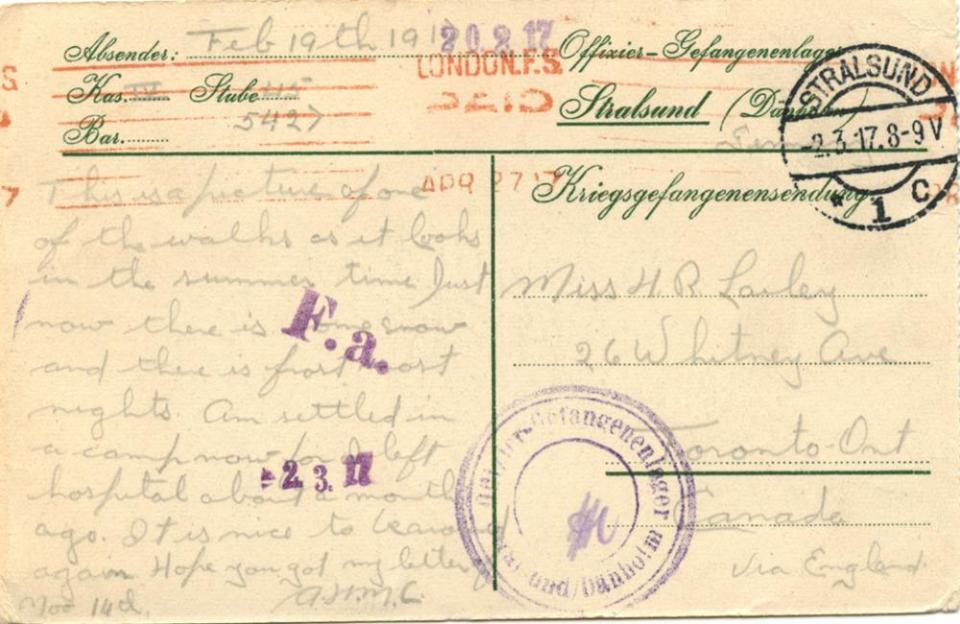 Absender: Feb 19th 19
20 2 17
Offizier-Gefangenenlager
LONDON.F.S.
Kas. IV Stube 115
PAID
Stralsund (Dänholm)
5427
Bar.
STRALSUND
-2.3.17.8-9V
* 1 C
APR 27 17
Kriegsgefangenensendung
This is a picture of one
of the walks as it looks
in the summer time Just
now there is some snow
and there is frost most
nights. Am settled in
a camp now for I left
hospital about a month
ago. It is nice to be around
again. Hope you got my letter of
Nov 14th.
F.a.
-2.3.17
Miss H R Lailey
26 Whitney Ave
Toronto Ont
Canada
via England
Offizier-Gefangenenlager
Stralsund/Dänholm